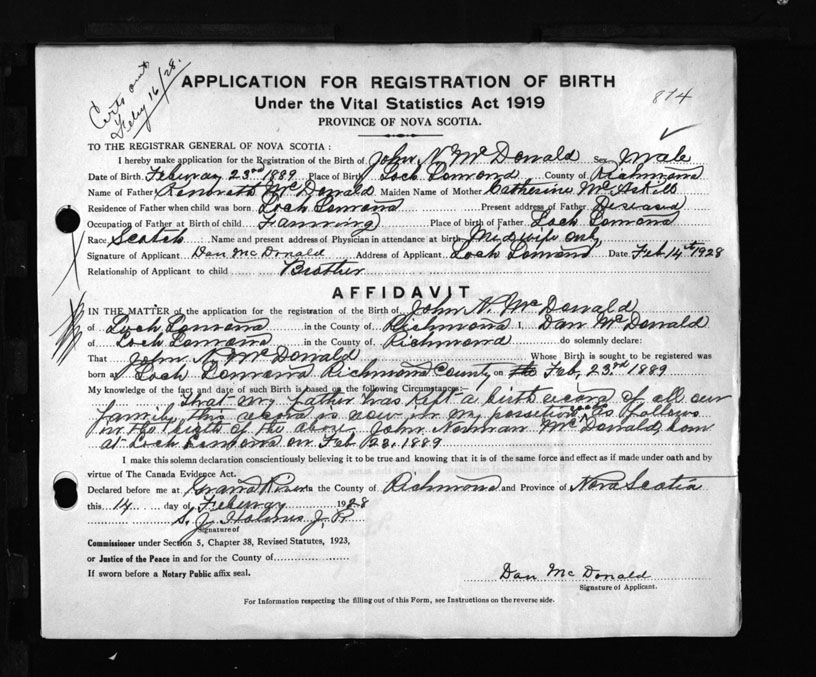 Certs out
Feby 16/28.
APPLICATION FOR REGISTRATION OF BIRTH
814
Under the Vital Statistics Act 1919
PROVINCE OF NOVA SCOTIA.
TO THE REGISTRAR GENERAL OF NOVA SCOTIA :
I hereby make application for the Registration of the Birth of John N. McDonald Sex Male
Date of Birth Feburay 23rd 1889 Place of Birth Loch Lomond County of Richmond
Name of Father McDonald Maiden Name of Mother Catherine McAskill
Residence of Father when child was born Loch Lomond Present address of Father Diseased
Occupation of Father at Birth of child Farming Place of birth of Father Loch Lomond
Race Scotch Name and present address of Physician in attendance at birth Midwife only
Signature of Applicant Dan McDonald Address of Applicant Loch Lomond Date Feb 14th 1928
Relationship of Applicant to child Brother
AFFIDAVIT
IN THE MATTER of the application for the registration of the Birth of John N. McDonald
of Loch Lomond in the County of Richmond I, Dan McDonald
of Loch Lomond in the County of Richmond do solemnly declare:
That John N. McDonald Whose Birth is sought to be registered was
born at Loch Lomond Richmond County on Feb, 23rd 1889
My knowledge of the fact and date of such Birth is based on the following Circumstances:-
That my father has kept a birth record of all our
family, this record is now in my possetion as follows
in the birth of the above John Norman McDonald, born
at Loch Lomond on Feb 23. 1889
I make this solemn declaration conscientiously believing it to be true and knowing that it is of the same force and effect as if made under oath and by
virtue of The Canada Evidence Act.
Declared before me at Grand River in the County of Richmond and Province of Nova Scotia
this 14 day of Feburay 1928
Signature of
Commissioner under Section 5, Chapter 38, Revised Statutes, 1923,
or Justice of the Peace in and for the County of
If sworn before a Notary Public affix seal.
Dan McDonald
Signature of Applicant.
For Information respecting the filling out of this Form, see Instructions on the reverse side.